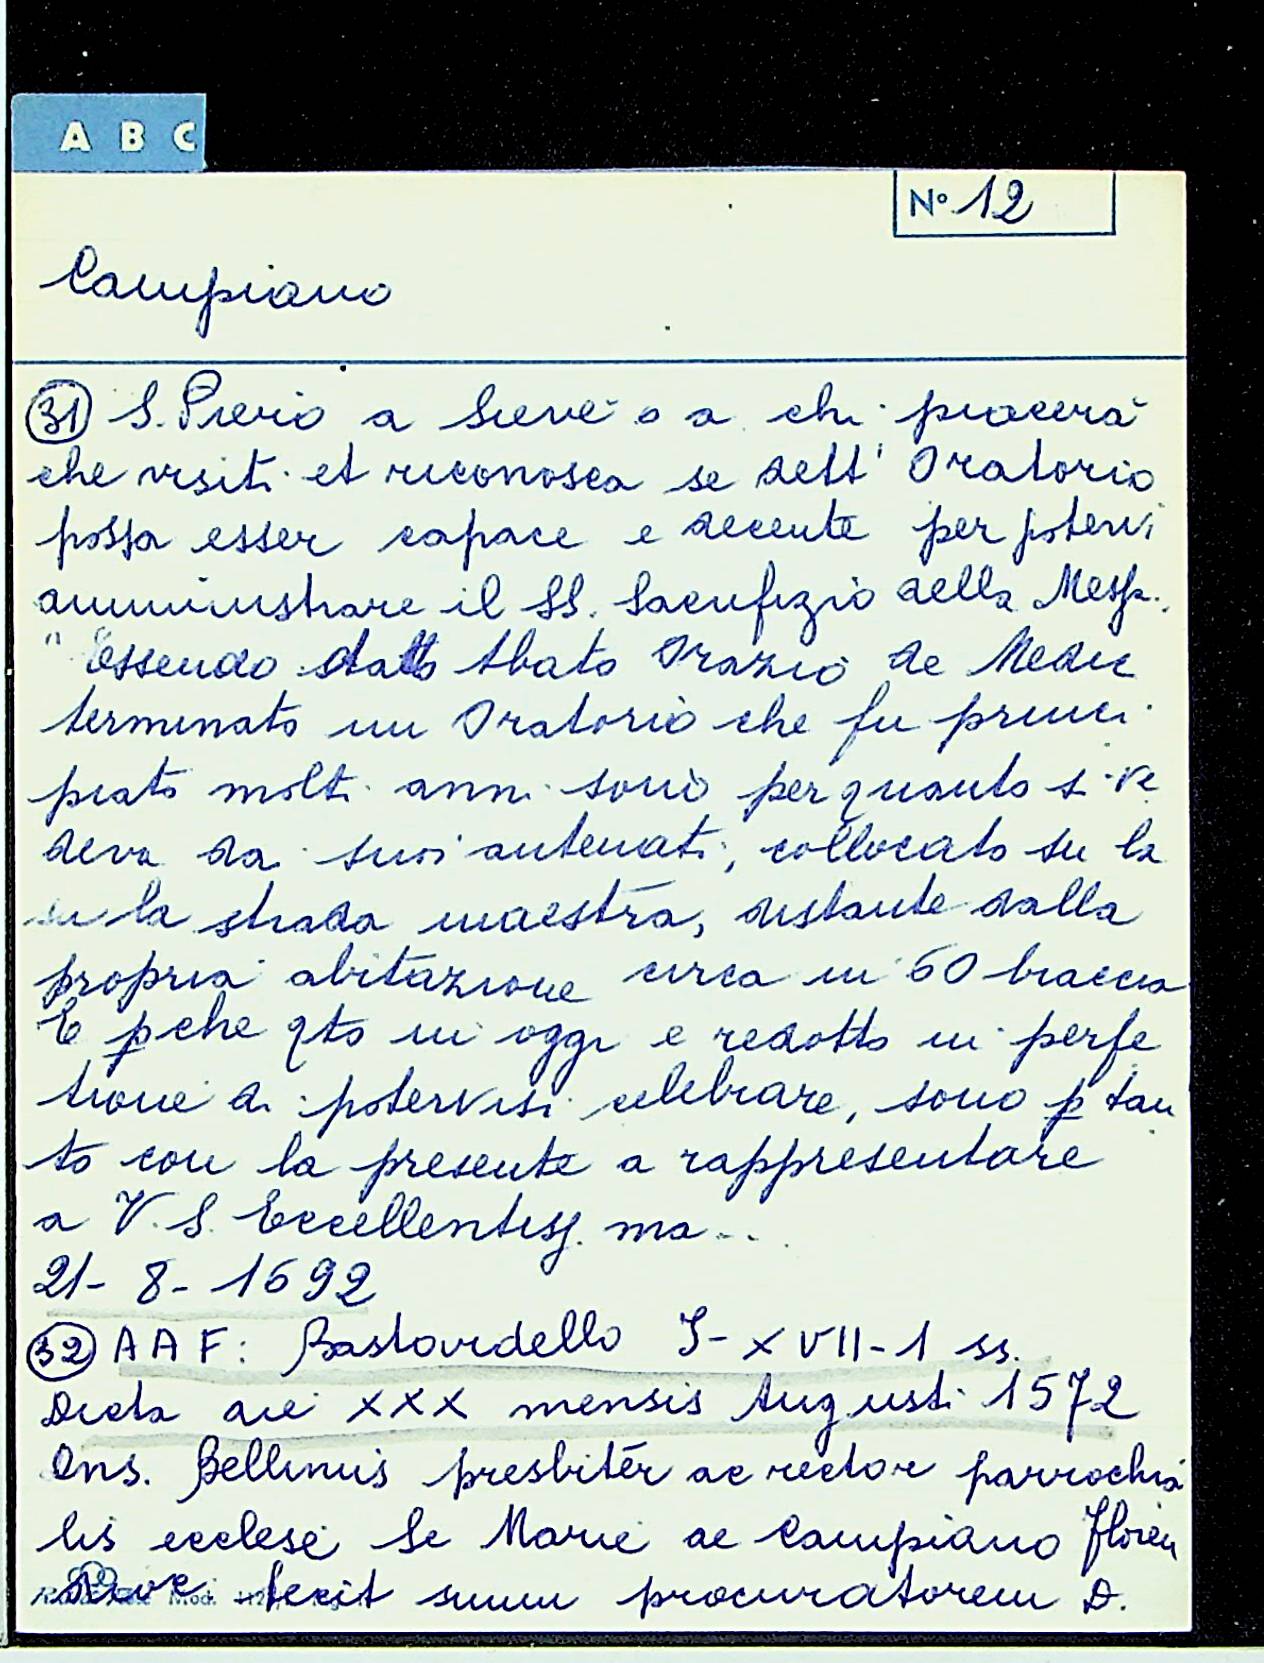 A B C
N° 12
Campiano
31 S. Pierio a Sieve o a chi piacerà
che visiti et riconosca se dett' Oratorio
possa esser capace e decente per potervi
amministrare il SS. Sacrifizio della Messa.
" Essendo stato Abato Orazio de Medic
terminato un Oratorio che fu princi
piato molti anni sono per quanto si ve
deva da suoi antenati, collocato su la
su la strada maestra, distante dalla
propria abitazione circa in 60 braccia
E pche qto in oggi e redotto in perfe
tione di potervisi celebrare, sono p tan
to con la presente a rappresentare
a V. S. Eccellentiss. ma...
21- 8- 1692
32 A A F: Bastardello I- XVII-1 ss.
Dicta die XXX mensis Augusti 1572
Dns. Bellinus presbiter ac rector parrochia
lis ecclese Se Marie de Campiano floren
dioc. fecit suum procuratorem D.